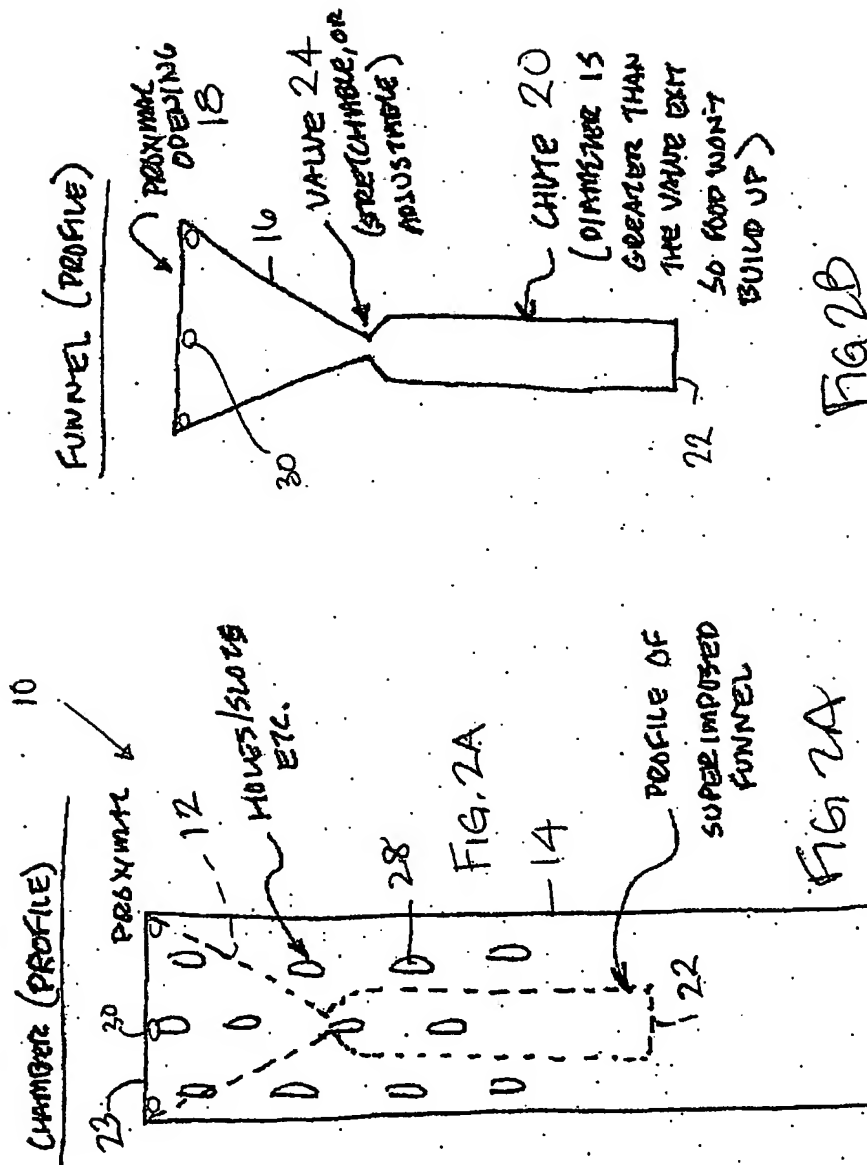 CHAMBER (PROFILE)
10
PROXIMAL
23
30
12
HOLES/SLOTS
ETC.
28
FIG. 2A
14
PROFILE OF
SUPERIMPOSED
FUNNEL
22
FIG 2A
FUNNEL (PROFILE)
PROXIMAL
OPENING
18
30
16
VALVE 24
(STRETCHABLE, OR
ADJUSTABLE)
CHUTE 20
(DIAMETER IS
GREATER THAN
THE VALVE EXIT
SO FOOD WON'T
BUILD UP)
22
FIG 2B